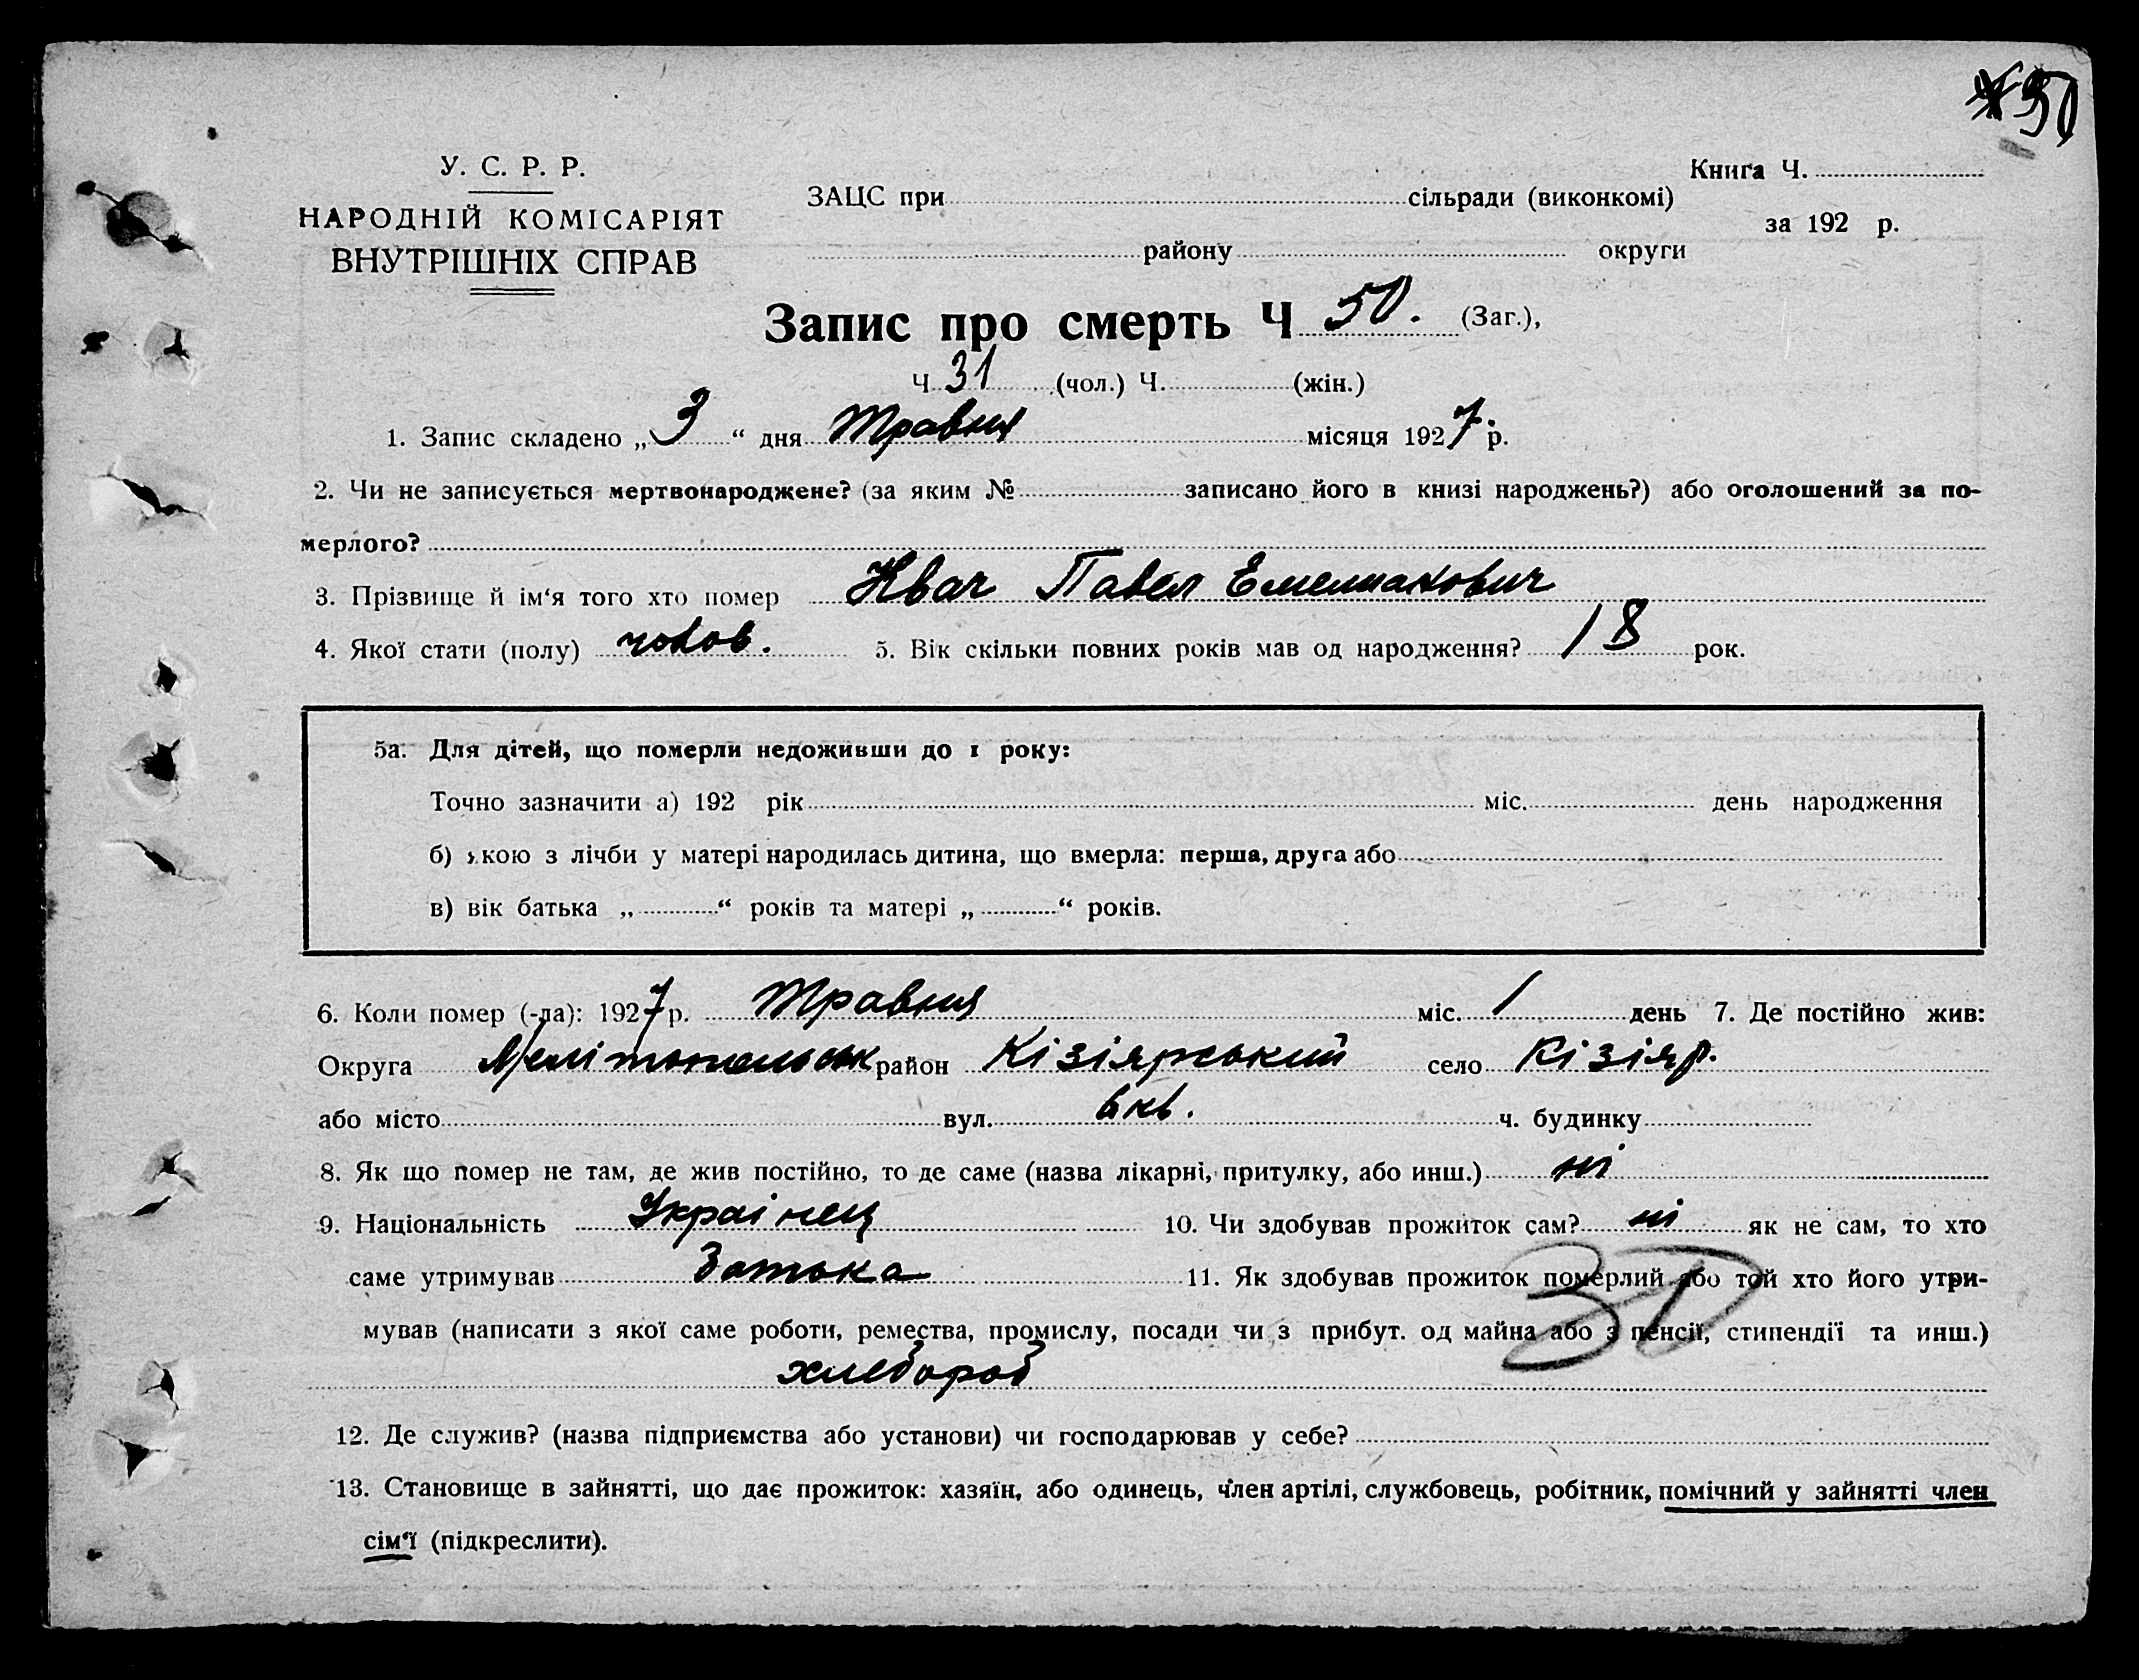 50
У. С. Р. Р.
НАРОДНІЙ КОМІСАРІЯТ
ВНУТРІШНІХ СПРАВ
Книга Ч.
ЗАЦС при сільради (виконкомі)
за 192 р.
району округи
Запис про смерть Ч 50. (Заг.),
Ч. 31 (чол.) Ч. (жін.)
1. Запис складено „3“ дня Травня місяця 1927 р.
2. Чи не записується мертвонароджене? (за яким № записано його в книзі народжень?) або оголошений за по-
мерлого?
3. Прізвище й ім‘я того хто помер Квач Павел Емелианович
4. Якої стати (полу) чолов. 5. Вік скільки повних років мав од народження? 18 рок.
5а. Для дітей, що померли недоживши до 1 року:
Точно зазначити а) 192 рік міс. день народження
б) якою з лічби у матері народилась дитина, що вмерла: перша, друга або
в) вік батька „ “ років та матері „ “ років.
6. Коли помер (-ла): 1927 р. Травня міс. 1 день 7. Де постійно жив:
Округа Мелітопольськ район Кізіярський село Кізіяр.
або місто вул. 6 кв. ч. будинку
8. Як що помер не там, де жив постійно, то де саме (назва лікарні, притулку, або инш.) ні
9. Національність Украінец 10. Чи здобував прожиток сам? ні як не сам, то хто
саме утримував Батька 11. Як здобував прожиток померлий або той хто його утри-
мував (написати з якої саме роботи, ремества, промислу, посади чи з прибут. од майна або з пенсії, стипендії та инш.)
30
хлебороб
12. Де служив? (назва підприємства або установи) чи господарював у себе?
13. Становище в зайнятті, що дає прожиток: хазяїн, або одинець, член артілі, службовець, робітник, помічний у зайнятті член
сім‘ї (підкреслити).